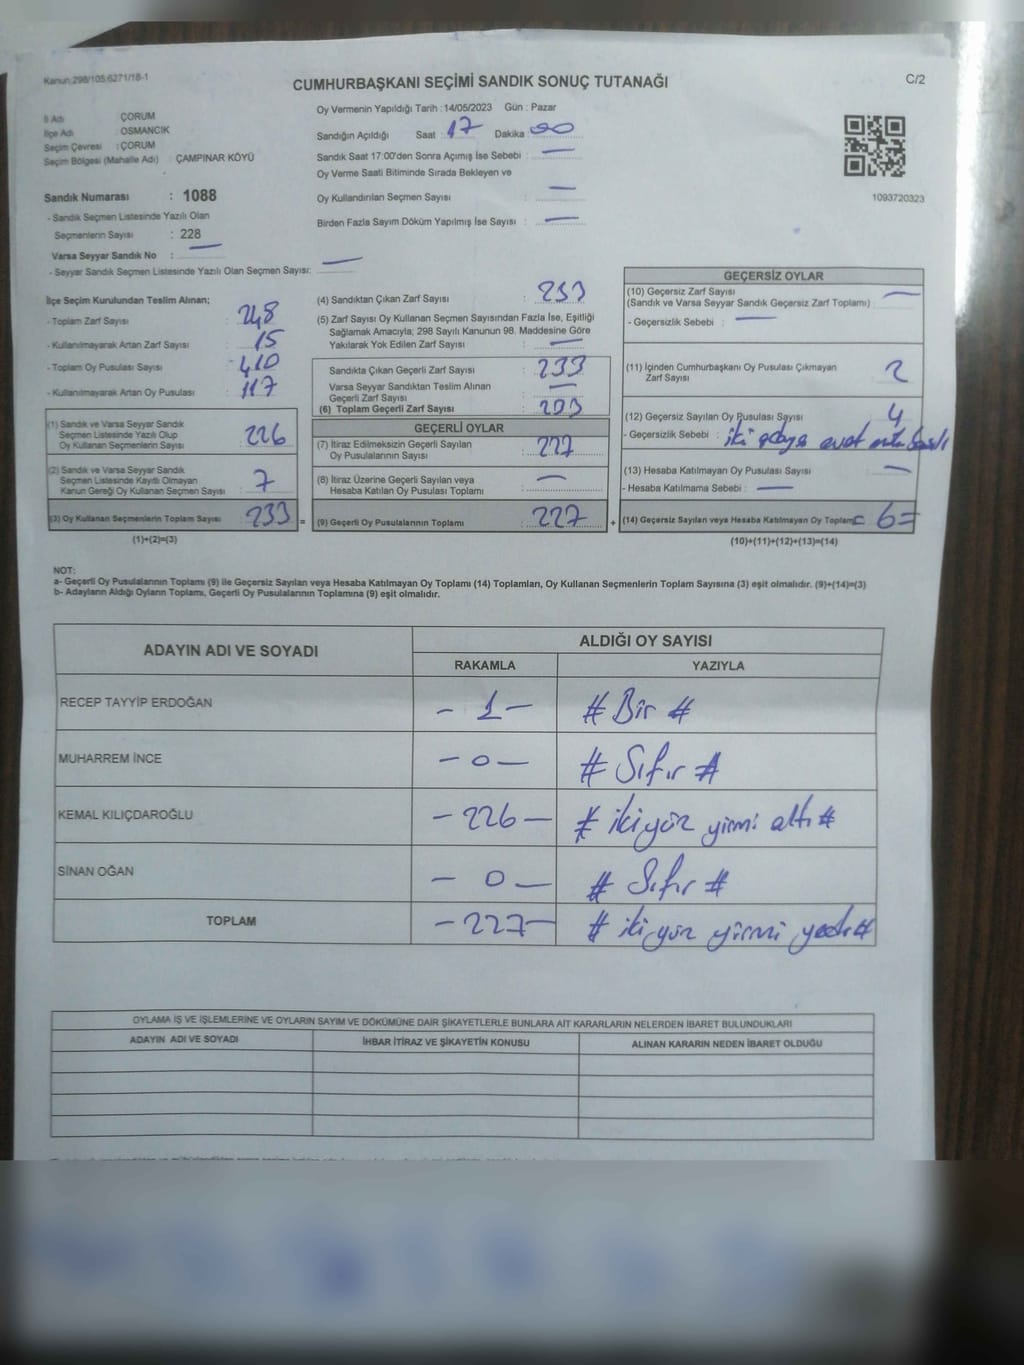 Kanun:298/105,6271/18-1
CUMHURBAŞKANI SEÇİMİ SANDIK SONUÇ TUTANAĞI
C/2
İl Adı : ÇORUM
İlçe Adı : OSMANCIK
Seçim Çevresi : ÇORUM
Seçim Bölgesi (Mahalle Adı) : ÇAMPINAR KÖYÜ
Sandık Numarası : 1088
- Sandık Seçmen Listesinde Yazılı Olan
Seçmenlerin Sayısı : 228
Varsa Seyyar Sandık No : —
- Seyyar Sandık Seçmen Listesinde Yazılı Olan Seçmen Sayısı: —
Oy Vermenin Yapıldığı Tarih : 14/05/2023 Gün : Pazar
Sandığın Açıldığı Saat : 17 Dakika : 00
Sandık Saat 17:00'den Sonra Açımış İse Sebebi : —
Oy Verme Saati Bitiminde Sırada Bekleyen ve
Oy Kullandırılan Seçmen Sayısı : —
Birden Fazla Sayım Döküm Yapılmış İse Sayısı : —
1093720323
İlçe Seçim Kurulundan Teslim Alınan;
- Toplam Zarf Sayısı : 248
- Kullanılmayarak Artan Zarf Sayısı : 15
- Toplam Oy Pusulası Sayısı : 410
- Kullanılmayarak Artan Oy Pusulası : 117
(1) Sandık ve Varsa Seyyar Sandık
Seçmen Listesinde Yazılı Olup
Oy Kullanan Seçmenlerin Sayısı : 226
(2) Sandık ve Varsa Seyyar Sandık
Seçmen Listesinde Kayıtlı Olmayan
Kanun Gereği Oy Kullanan Seçmen Sayısı : 7
(3) Oy Kullanan Seçmenlerin Toplam Sayısı : 233 =
(1)+(2)=(3)
(4) Sandıktan Çıkan Zarf Sayısı : 233
(5) Zarf Sayısı Oy Kullanan Seçmen Sayısından Fazla İse, Eşitliği
Sağlamak Amacıyla; 298 Sayılı Kanunun 98. Maddesine Göre
Yakılarak Yok Edilen Zarf Sayısı : —
Sandıkta Çıkan Geçerli Zarf Sayısı : 233
Varsa Seyyar Sandıktan Teslim Alınan
Geçerli Zarf Sayısı : —
(6) Toplam Geçerli Zarf Sayısı : 233
GEÇERLİ OYLAR
(7) İtiraz Edilmeksizin Geçerli Sayılan
Oy Pusulalarının Sayısı : 227
(8) İtiraz Üzerine Geçerli Sayılan veya
Hesaba Katılan Oy Pusulası Toplamı : —
(9) Geçerli Oy Pusulalarının Toplamı : 227 +
GEÇERSİZ OYLAR
(10) Geçersiz Zarf Sayısı
(Sandık ve Varsa Seyyar Sandık Geçersiz Zarf Toplamı) —
- Geçersizlik Sebebi : —
(11) İçinden Cumhurbaşkanı Oy Pusulası Çıkmayan
Zarf Sayısı 2
(12) Geçersiz Sayılan Oy Pusulası Sayısı 4
- Geçersizlik Sebebi : iki adaya evet
(13) Hesaba Katılmayan Oy Pusulası Sayısı —
- Hesaba Katılmama Sebebi : —
(14) Geçersiz Sayılan veya Hesaba Katılmayan Oy Toplamı = 6 =
(10)+(11)+(12)+(13)=(14)
NOT:
a- Geçerli Oy Pusulalarının Toplamı (9) ile Geçersiz Sayılan veya Hesaba Katılmayan Oy Toplamı (14) Toplamları, Oy Kullanan Seçmenlerin Toplam Sayısına (3) eşit olmalıdır. (9)+(14)=(3)
b- Adayların Aldığı Oyların Toplamı, Geçerli Oy Pusulalarının Toplamına (9) eşit olmalıdır.
ADAYIN ADI VE SOYADI
ALDIĞI OY SAYISI
RAKAMLA YAZIYLA
RECEP TAYYİP ERDOĞAN - 1 - # Bir #
MUHARREM İNCE - 0 - # Sıfır #
KEMAL KILIÇDAROĞLU - 226 - # iki yüz yirmi altı #
SİNAN OĞAN - 0 - # Sıfır #
TOPLAM - 227 - # iki yüz yirmi yedi #
OYLAMA İŞ VE İŞLEMLERİNE VE OYLARIN SAYIM VE DÖKÜMÜNE DAİR ŞİKAYETLERLE BUNLARA AİT KARARLARIN NELERDEN İBARET BULUNDUKLARI
ADAYIN ADI VE SOYADI İHBAR İTİRAZ VE ŞİKAYETİN KONUSU ALINAN KARARIN NEDEN İBARET OLDUĞU